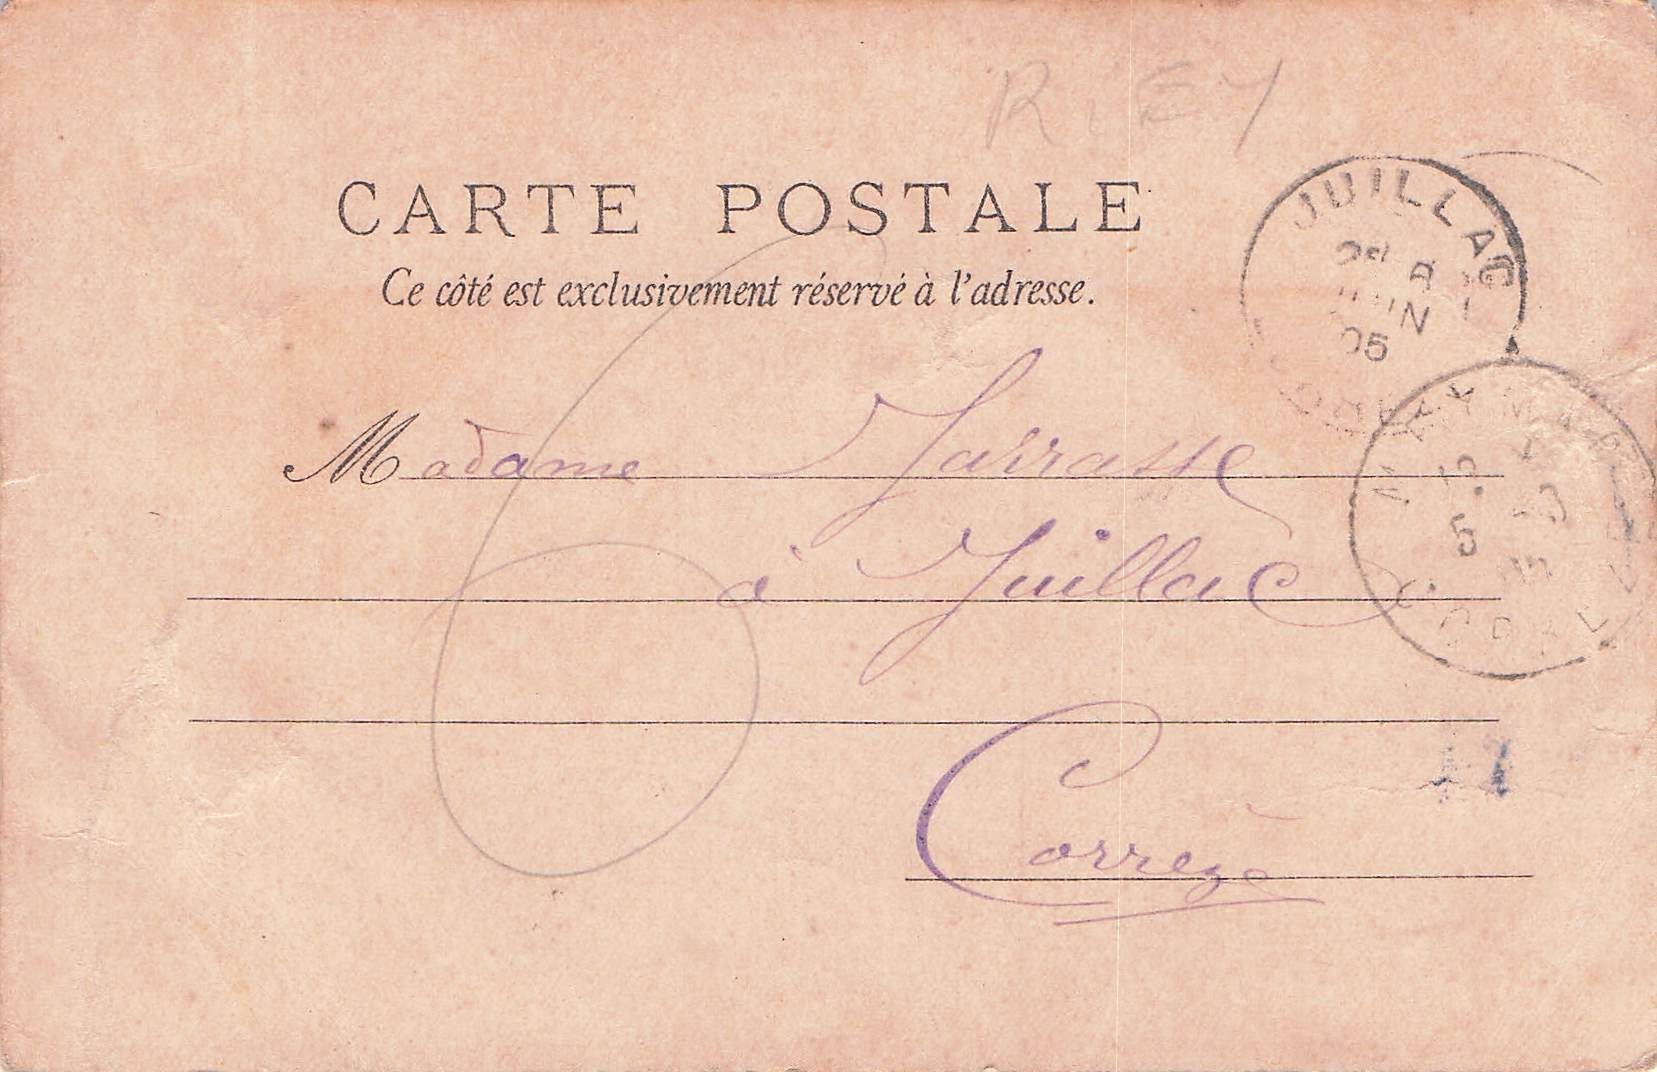 CARTE POSTALE
Ce côté est exclusivement réservé à l'adresse.
JUILLAC
05
Madame Jarrasse
à Juillac
Corrèze